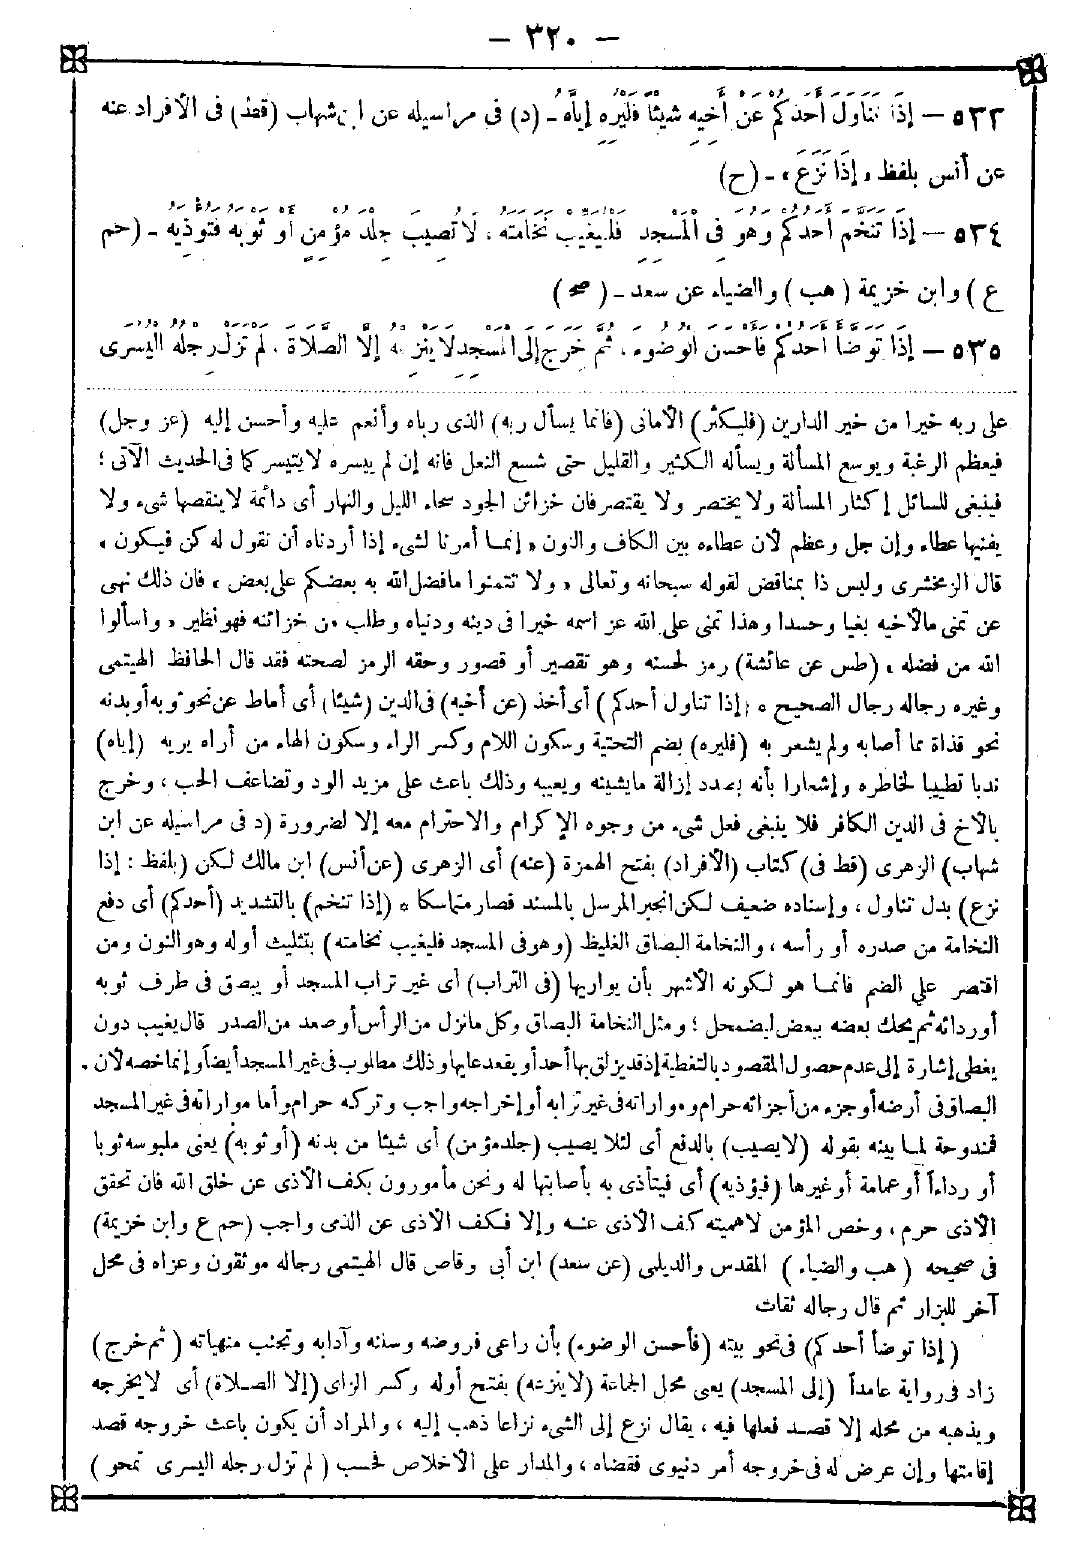 — ٣٢٠ —
٥٣٣ — إِذَا تَنَاوَلَ أَحَدُكُمْ عَنْ أَخِيهِ شَيْئًا فَلْيُرِهِ إِيَّاهُ - (د) فى مراسيله عن ابن شهاب (قط) فى الأفراد عنه
عن أنس بلفظ « إِذَا نَزَعَ » - (ح)
٥٣٤ — إِذَا تَنَخَّمَ أَحَدُكُمْ وَهُوَ فِى الْمَسْجِدِ فَلْيُغَيِّبْ نُخَامَتَهُ ، لَا تُصِيبَ جِلْدَ مُؤْمِنٍ أَوْ ثَوْبَهُ فَتُؤْذِيهِ - (حم
ع) وابن خزيمة (هب) والضياء عن سعد - (صح)
٥٣٥ — إِذَا تَوَضَّأَ أَحَدُكُمْ فَأَحْسَنَ الْوُضُوءَ ، ثُمَّ خَرَجَ إِلَى الْمَسْجِدِ لَا يَنْزِعُهُ إِلَّا الصَّلَاةُ ، لَمْ تَزَلْ رِجْلُهُ الْيُسْرَى
على ربه خيرا من خير الدارين (فليكثر) الأمانى (فانما يسأل ربه) الذى رباه وأنعم عليه وأحسن إليه (عز وجل)
فيعظم الرغبة ويوسع المسألة ويسأله الكثير والقليل حتى شسع النعل فانه إن لم ييسره لا يتيسر كما فى الحديث الآتى ؛
فينبغى للسائل إكثار المسألة ولا يختصر ولا يقتصر فان خزائن الجود سحاء الليل والنهار أى دائمة لا ينقصها شىء ولا
يفنيها عطاء وإن جل وعظم لأن عطاءه بين الكاف والنون « إنما أمرنا لشىء إذا أردناه أن نقول له كن فيكون »
قال الزمخشرى وليس ذا بمناقض لقوله سبحانه وتعالى « ولا تتمنوا ما فضل الله به بعضكم على بعض » فان ذلك نهى
عن تمنى مالأخيه بغيا وحسدا وهذا تمنى على الله عز اسمه خيرا فى دينه ودنياه وطلب من خزائنه فهو نظير « واسألوا
الله من فضله » (طس عن عائشة) رمز لحسنه وهو تقصير أو قصور وحقه الرمز لصحته فقد قال الحافظ الهيتمى
وغيره رجاله رجال الصحيح * (إذا تناول أحدكم) أى أخذ (عن أخيه) فى الدين (شيئا) أى أماط عن نحو ثوبه أو بدنه
نحو قذاة مما أصابه ولم يشعر به (فليره) بضم التحتية وسكون اللام وكسر الراء وسكون الهاء من أراه يريه (إياه)
ندبا تطييبا لخاطره وإشعارا بأنه بصدد إزالة مايشينه ويعيبه وذلك باعث على مزيد الود وتضاعف الحب ، وخرج
بالأخ فى الدين الكافر فلا ينبغى فعل شىء من وجوه الإكرام والاحترام معه إلا لضرورة (د فى مراسيله عن ابن
شهاب) الزهرى (قط فى) كتاب (الأفراد) بفتح الهمزة (عنه) أى الزهرى (عن أنس) ابن مالك لكن (بلفظ : إذا
نزع) بدل تناول ، وإسناده ضعيف لكن انجبر المرسل بالمسند فصار متماسكا * (إذا تنخم) بالتشديد (أحدكم) أى دفع
النخامة من صدره أو رأسه ، والنخامة البصاق الغليظ (وهو فى المسجد فليغيب نخامته) بتثليث أوله وهو النون ومن
اقتصر على الضم فانما هو لكونه الأشهر بأن يواريها (فى التراب) أى غير تراب المسجد أو يبصق فى طرف ثوبه
أو ردائه ثم يحك بعضه ببعض ليضمحل ؛ ومثل النخامة البصاق وكل مانزل من الرأس أو صعد من الصدر قال يغيب دون
يغطى إشارة إلى عدم حصول المقصود بالتغطية إذ قد يزلق بها أحد أو يقعد عليها وذلك مطلوب فى غير المسجد أيضاً وإنما خصه لأن
البصاق فى أرضه أو جزء من أجزائه حرام ومواراته فى غير ترابه أو إخراجه واجب وتركه حرام وأما مواراته فى غير المسجد
فمندوحة لما بينه بقوله (لا يصيب) بالدفع أى لئلا يصيب (جلد مؤمن) أى شيئا من بدنه (أو ثوبه) يعنى ملبوسه ثوبا
أو رداءاً أو عمامة أو غيرها (فيؤذيه) أى فيتأذى به بأصابتها له ونحن مأمورون بكف الأذى عن خلق الله فان تحقق
الأذى حرم ، وخص المؤمن لاهميته كف الاذى عنه وإلا فكف الاذى عن الذمى واجب (حم ع وابن خزيمة)
فى صحيحه (هب والضياء) المقدس والديلمى (عن سعد) ابن أبى وقاص قال الهيتمى رجاله موثقون وعزاه فى محل
آخر للبزار ثم قال رجاله ثقات
(إذا توضأ أحدكم) فى نحو بيته (فأحسن الوضوء) بأن راعى فروضه وسننه وآدابه وتجنب منهياته (ثم خرج)
زاد فى رواية عامداً (إلى المسجد) يعى محل الجماعة (لا ينزعه) بفتح أوله وكسر الزاى (إلا الصلاة) أى لا يخرجه
ويذهبه من محله إلا قصد فعلها فيه ، يقال نزع إلى الشىء نزاعا ذهب إليه ، والمراد أن يكون باعث خروجه قصد
إقامتها وإن عرض له فى خروجه أمر دنيوى فقضاه ، والمدار على الأخلاص فحسب (لم تزل رجله اليسرى تمحو)